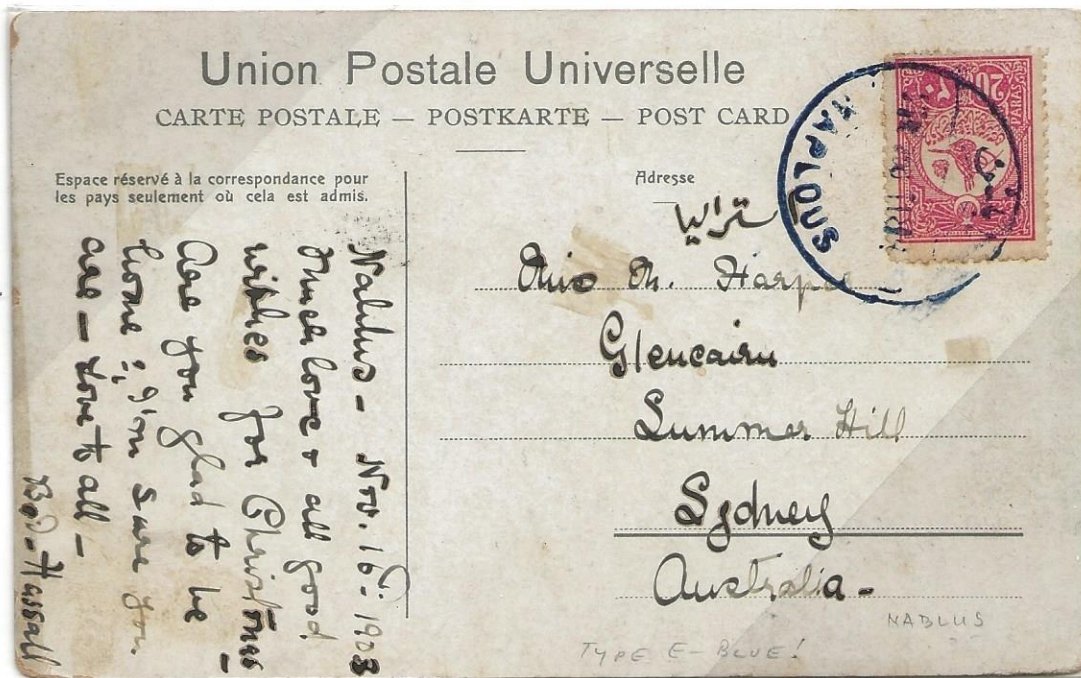 Union Postale Universelle
CARTE POSTALE — POSTKARTE — POST CARD
Espace réservé à la correspondance pour
les pays seulement où cela est admis.
Adresse
NAPLOUS
20
PARAS
Nablus - Nov. 16 - 1908
Much love & all good
wishes for Christmas -
Are you glad to be
home? I'm sure you
are - Love to all -
Hassall
ستراليا
Miss M. Harper
Glencairn
Summer Hill
Sydney
Australia -
NABLUS
TYPE E - BLUE!